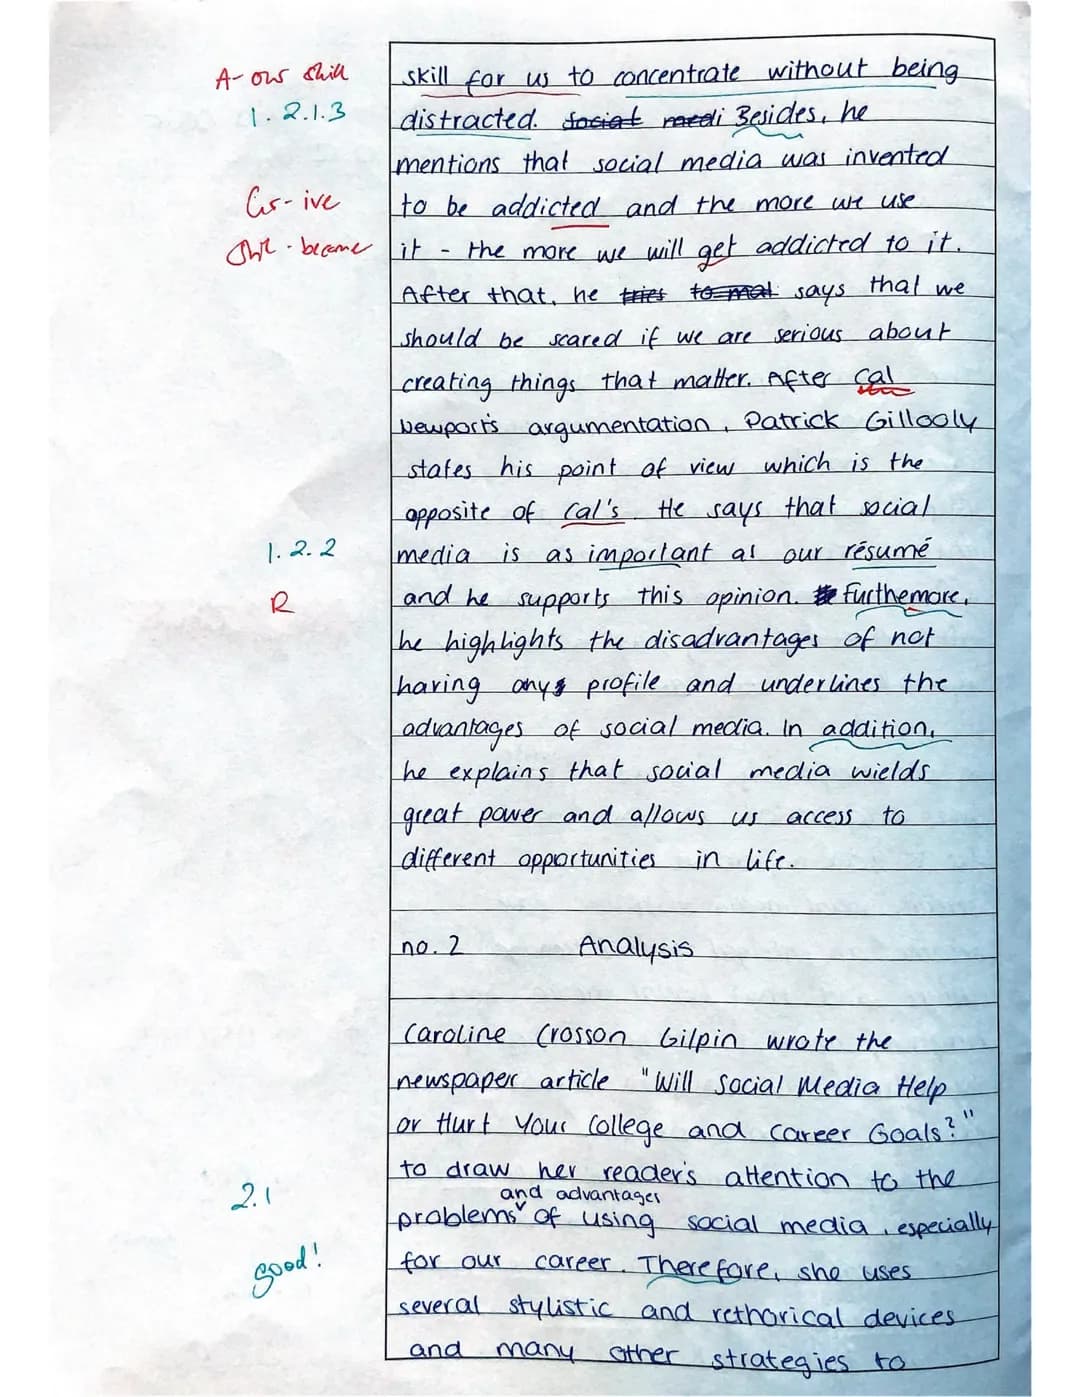 A- our skill
1.2.1.3
Gr- ive
Stil - become
1.2.2
R
2.1
good!
skill for us to concentrate without being
distracted. Besides, he
mentions that social media was invented
to be addicted and the more we use
it - the more we will get addicted to it.
After that, he tries says that we
should be scared if we are serious about
creating things that matter. After Cal
Newport's argumentation, Patrick Gillooly
states his point of view which is the
opposite of Cal's. He says that social
media is as important as our résumé
and he supports this opinion. Furthemore,
he highlights the disadvantages of not
having any profile and underlines the
advantages of social media. In addition,
he explains that social media wields
great power and allows us access to
different opportunities in life.
no. 2 Analysis
Caroline Crosson Gilpin wrote the
newspaper article "Will Social Media Help
or Hurt Your College and Career Goals?"
to draw her reader's attention to the
and advantages
problems of using social media, especially
for our career. Therefore, she uses
several stylistic and rethorical devices
and many other strategies to